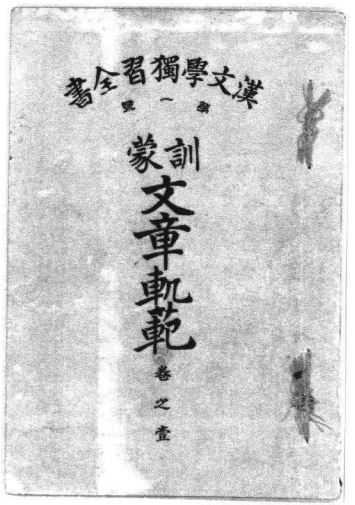 漢文學獨習全書
第一號
訓蒙
文章軌範
卷之壹